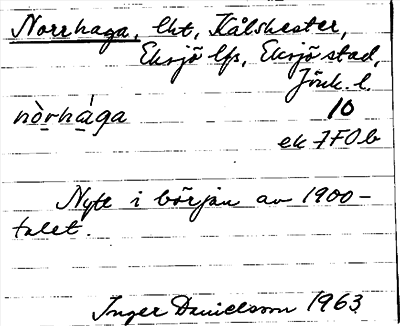 Norrhaga, lht, Kålshester,
Eksjö lfs, Eksjö stad,
Jönk. l.
nòrhága 10
ek 7F0b
Nytt i början av 1900-
talet.
Inger Danielsson 1963